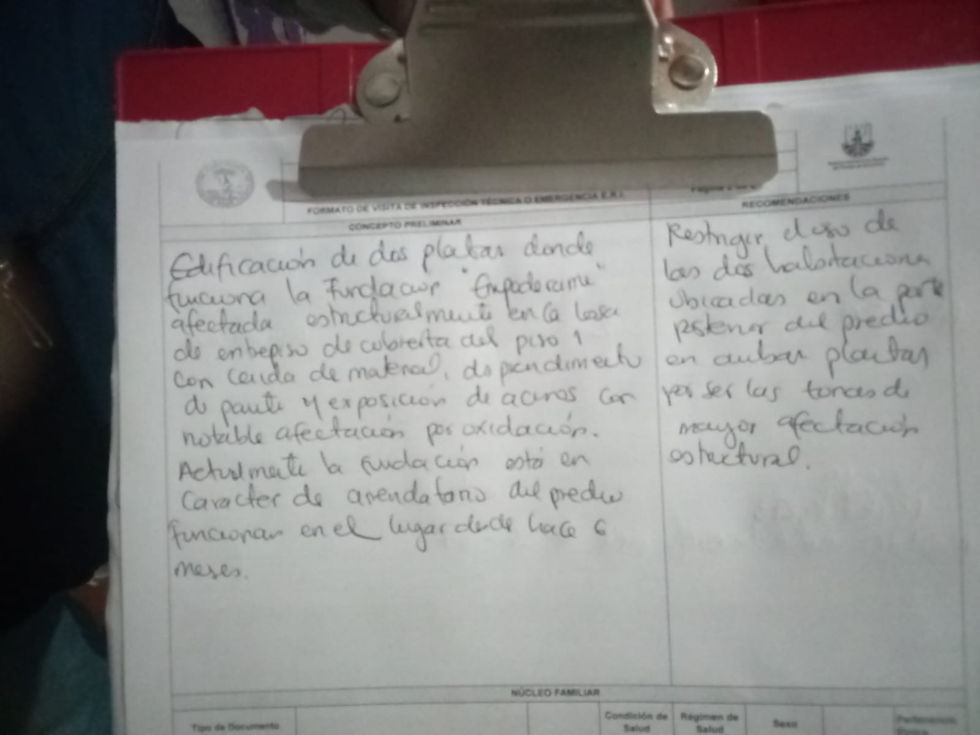 FORMATO DE VISITA DE INSPECCIÓN TÉCNICA O EMERGENCIA E.R.I.
CONCEPTO PRELIMINAR
Edificación de dos platas donde
funciona la Fundacion "Empoderame"
afectada estructuralmente en la losa
de entrepiso de cubierta del piso 1
con caida de material, desprendimiento
de pañete y exposición de aceros con
notable afectación por oxidación.
Actualmente la fundación está en
caracter de arrendatario del predio
funcionan en el lugar desde hace 6
meses.
RECOMENDACIONES
Restringir el uso de
las dos habitaciones
ubicadas en la parte
posterior del predio
en ambas plantas
por ser las zonas de
mayor afectación
estructural.
NÚCLEO FAMILIAR
Tipo de Documento
Condición de
Salud
Régimen de
Salud
Sexo